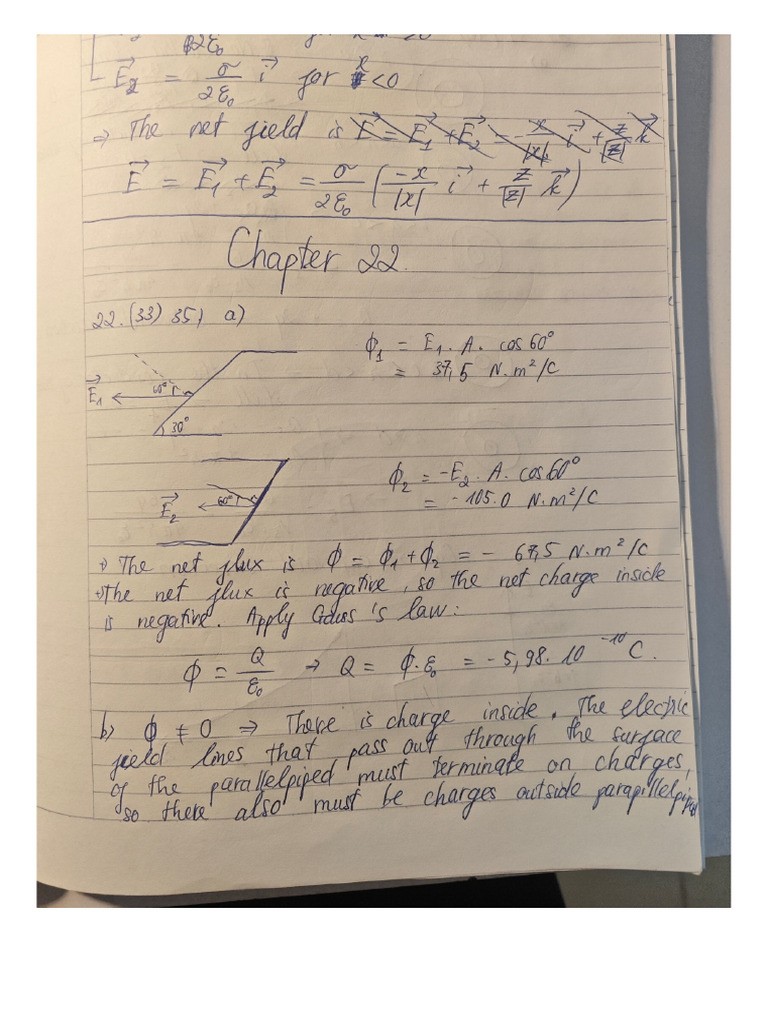 2ε₀ for
E⃗₂ = σ/2ε₀ i⃗ for x<0
⇒ The net field is E⃗ = E⃗₁ + E⃗₂ = -x/|x| i⃗ + z/|z| k⃗
E⃗ = E⃗₁ + E⃗₂ = σ/2ε₀ (-x/|x| i⃗ + z/|z| k⃗)
Chapter 22.
22. (33) 35, a)
ϕ₁ = E₁. A. cos60°
= 37,5 N.m²/C
E⃗₁
60°
30°
ϕ₂ = -E₂. A. cos60°
= -105.0 N.m²/C
E⃗₂
60°
+) The net flux is ϕ = ϕ₁ + ϕ₂ = - 67,5 N.m²/C
+) The net flux is negative, so the net charge inside
is negative. Apply Gauss's law:
ϕ = Q/ε₀ → Q = ϕ.ε₀ = -5,98. 10⁻¹⁰ C.
b) ϕ ≠ 0 ⇒ There is charge inside. The electric
field lines that pass out through the surface
of the parallelpiped must terminate on charges,
so there also must be charges outside parapillelpiped